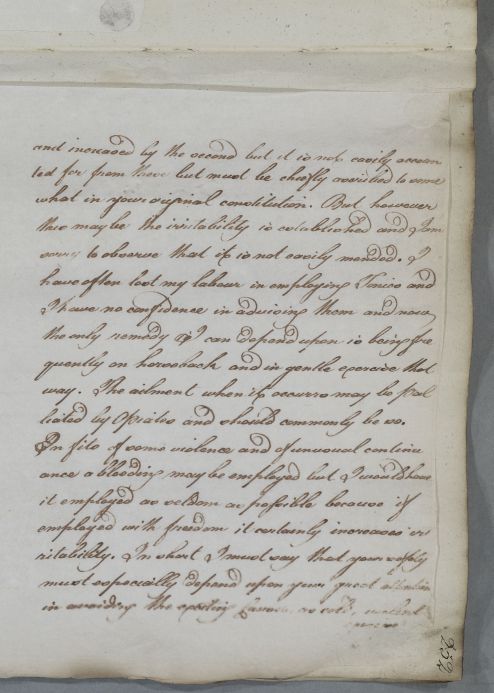 and increased by the second but it is not easily accoun
ted for from these but must be chiefly ascribed to some
what in your original constitution. But however
this may be the irritability is established and I am
sorry to observe that it is not easily mended. I
have often lost my labour in employing Tonics and
I have no confidence in advising them and now
the only remedy I can depend upon is being fre
quently on horseback and in gentle exercise that
way. The ailment when it occurrs may be pal
liated by Opiates and should commonly be so.
In fits of some violence and of unusual continu
ance a bleeding may be employed but I would have
it employed as seldom as possible because if
employed with freedom it certainly increases ir
ritability. In short I must say that your safety
must especially depend upon your great attention
in avoiding the exciting causes, as cold, violent
exercise
252